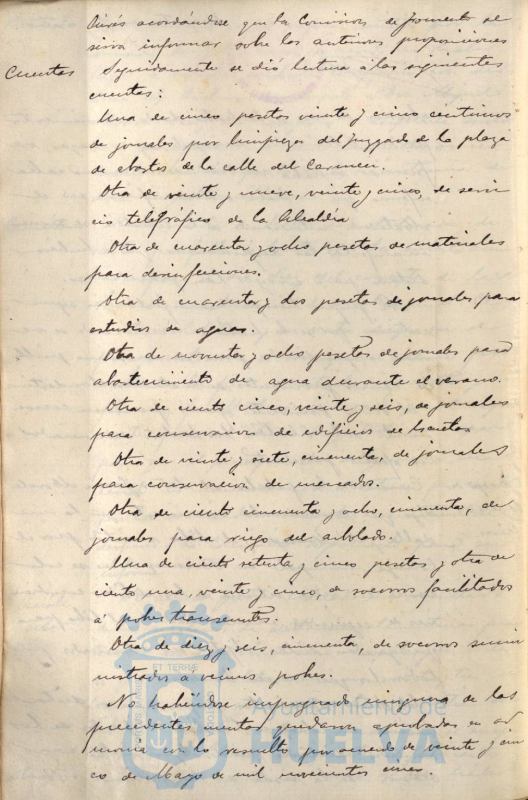 acordándose que la Comision de fomento se
sirva informar sobre las anteriores proposiciones
Cuentas
Seguidamente se dió lectura á las siguientes
cuentas:
Una de cinco pesetas veinte y cinco céntimos
de jornales por limpieza del juzgado de la plaza
de Abastos de la calle del Carmen.
Otra de veinte y nueve, veinte y cinco, de servi
cio telegrafico de la Alcaldia
Otra de cuarenta y ocho pesetas de materiales
para desinfecciones.
Otra de cuarenta y dos pesetas de jornales para
estudios de aguas.
Otra de noventa y ocho pesetas de jornales para
abastecimiento de agua durante el verano.
Otra de ciento cinco, veinte y seis, de jornales
para conservacion de edificios de Escuelas
Otra de veinte y siete, cincuenta, de jornales
para conservacion de mercados.
Otra de ciento cincuenta y ocho, cincuenta, de
jornales para riego del arbolado.
Una de ciento setenta y cinco pesetas y otra de
ciento una, veinte y cinco, de socorros facilitados
á pobres transeuntes.
Otra de diez y seis, cincuenta, de socorros sumi
nistrados á vecinos pobres.
No habiéndose impugnado ninguna de las
precedentes cuentas quedaron aprobadas en ar
monia con lo resuelto por acuerdo de veinte y cin
co de Mayo de mil novecientos cinco.
ET TERRÆ
Ayuntamiento de
HUELVA